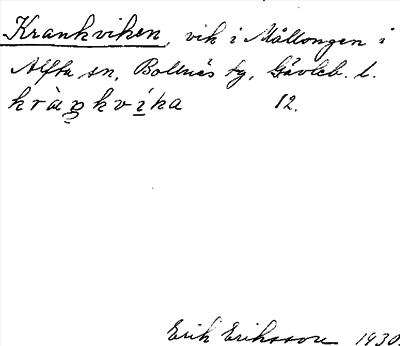 Krankviken, vik i Mållongen i
Alfta sn, Bollnäs tg, Gävleb. l.
kràŋkvíka 12.
Erik Eriksson 1930.